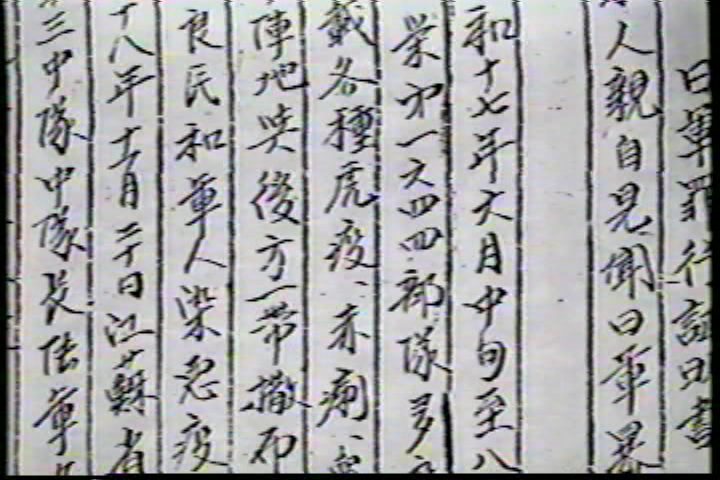 日軍罪行証明書
人親自見聞日軍暴
和十七年六月中旬至八
荣字一六四四部隊多
載各種虎疫、赤痢、
陣地與後方一帶撒布
良民和軍人染惡疫
十八年十一月二十日江蘇省
三中隊中隊長陸軍